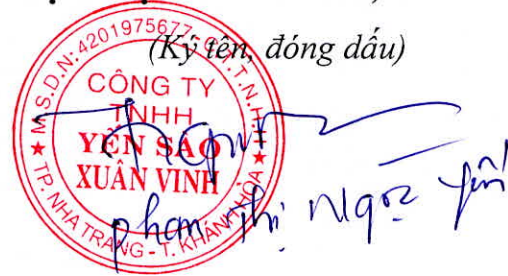 (Ký tên, đóng dấu)
M.S.D.N: 4201975677 - C.T.T.N.H.H
CÔNG TY
TNHH
YẾN SÀO
XUÂN VINH
TP. NHA TRANG - T. KHÁNH HÒA
phan thị Ngọc yến